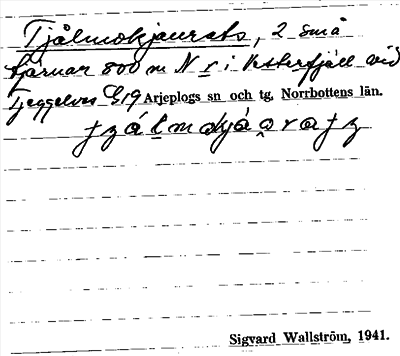 Tjålmokjaurats, 2 små
tjärnar 800 m N i Vesterfjäll vid
Tjeggelvas G19 Arjeplogs sn och tg, Norrbottens län.
Sigvard Wallström, 1941.